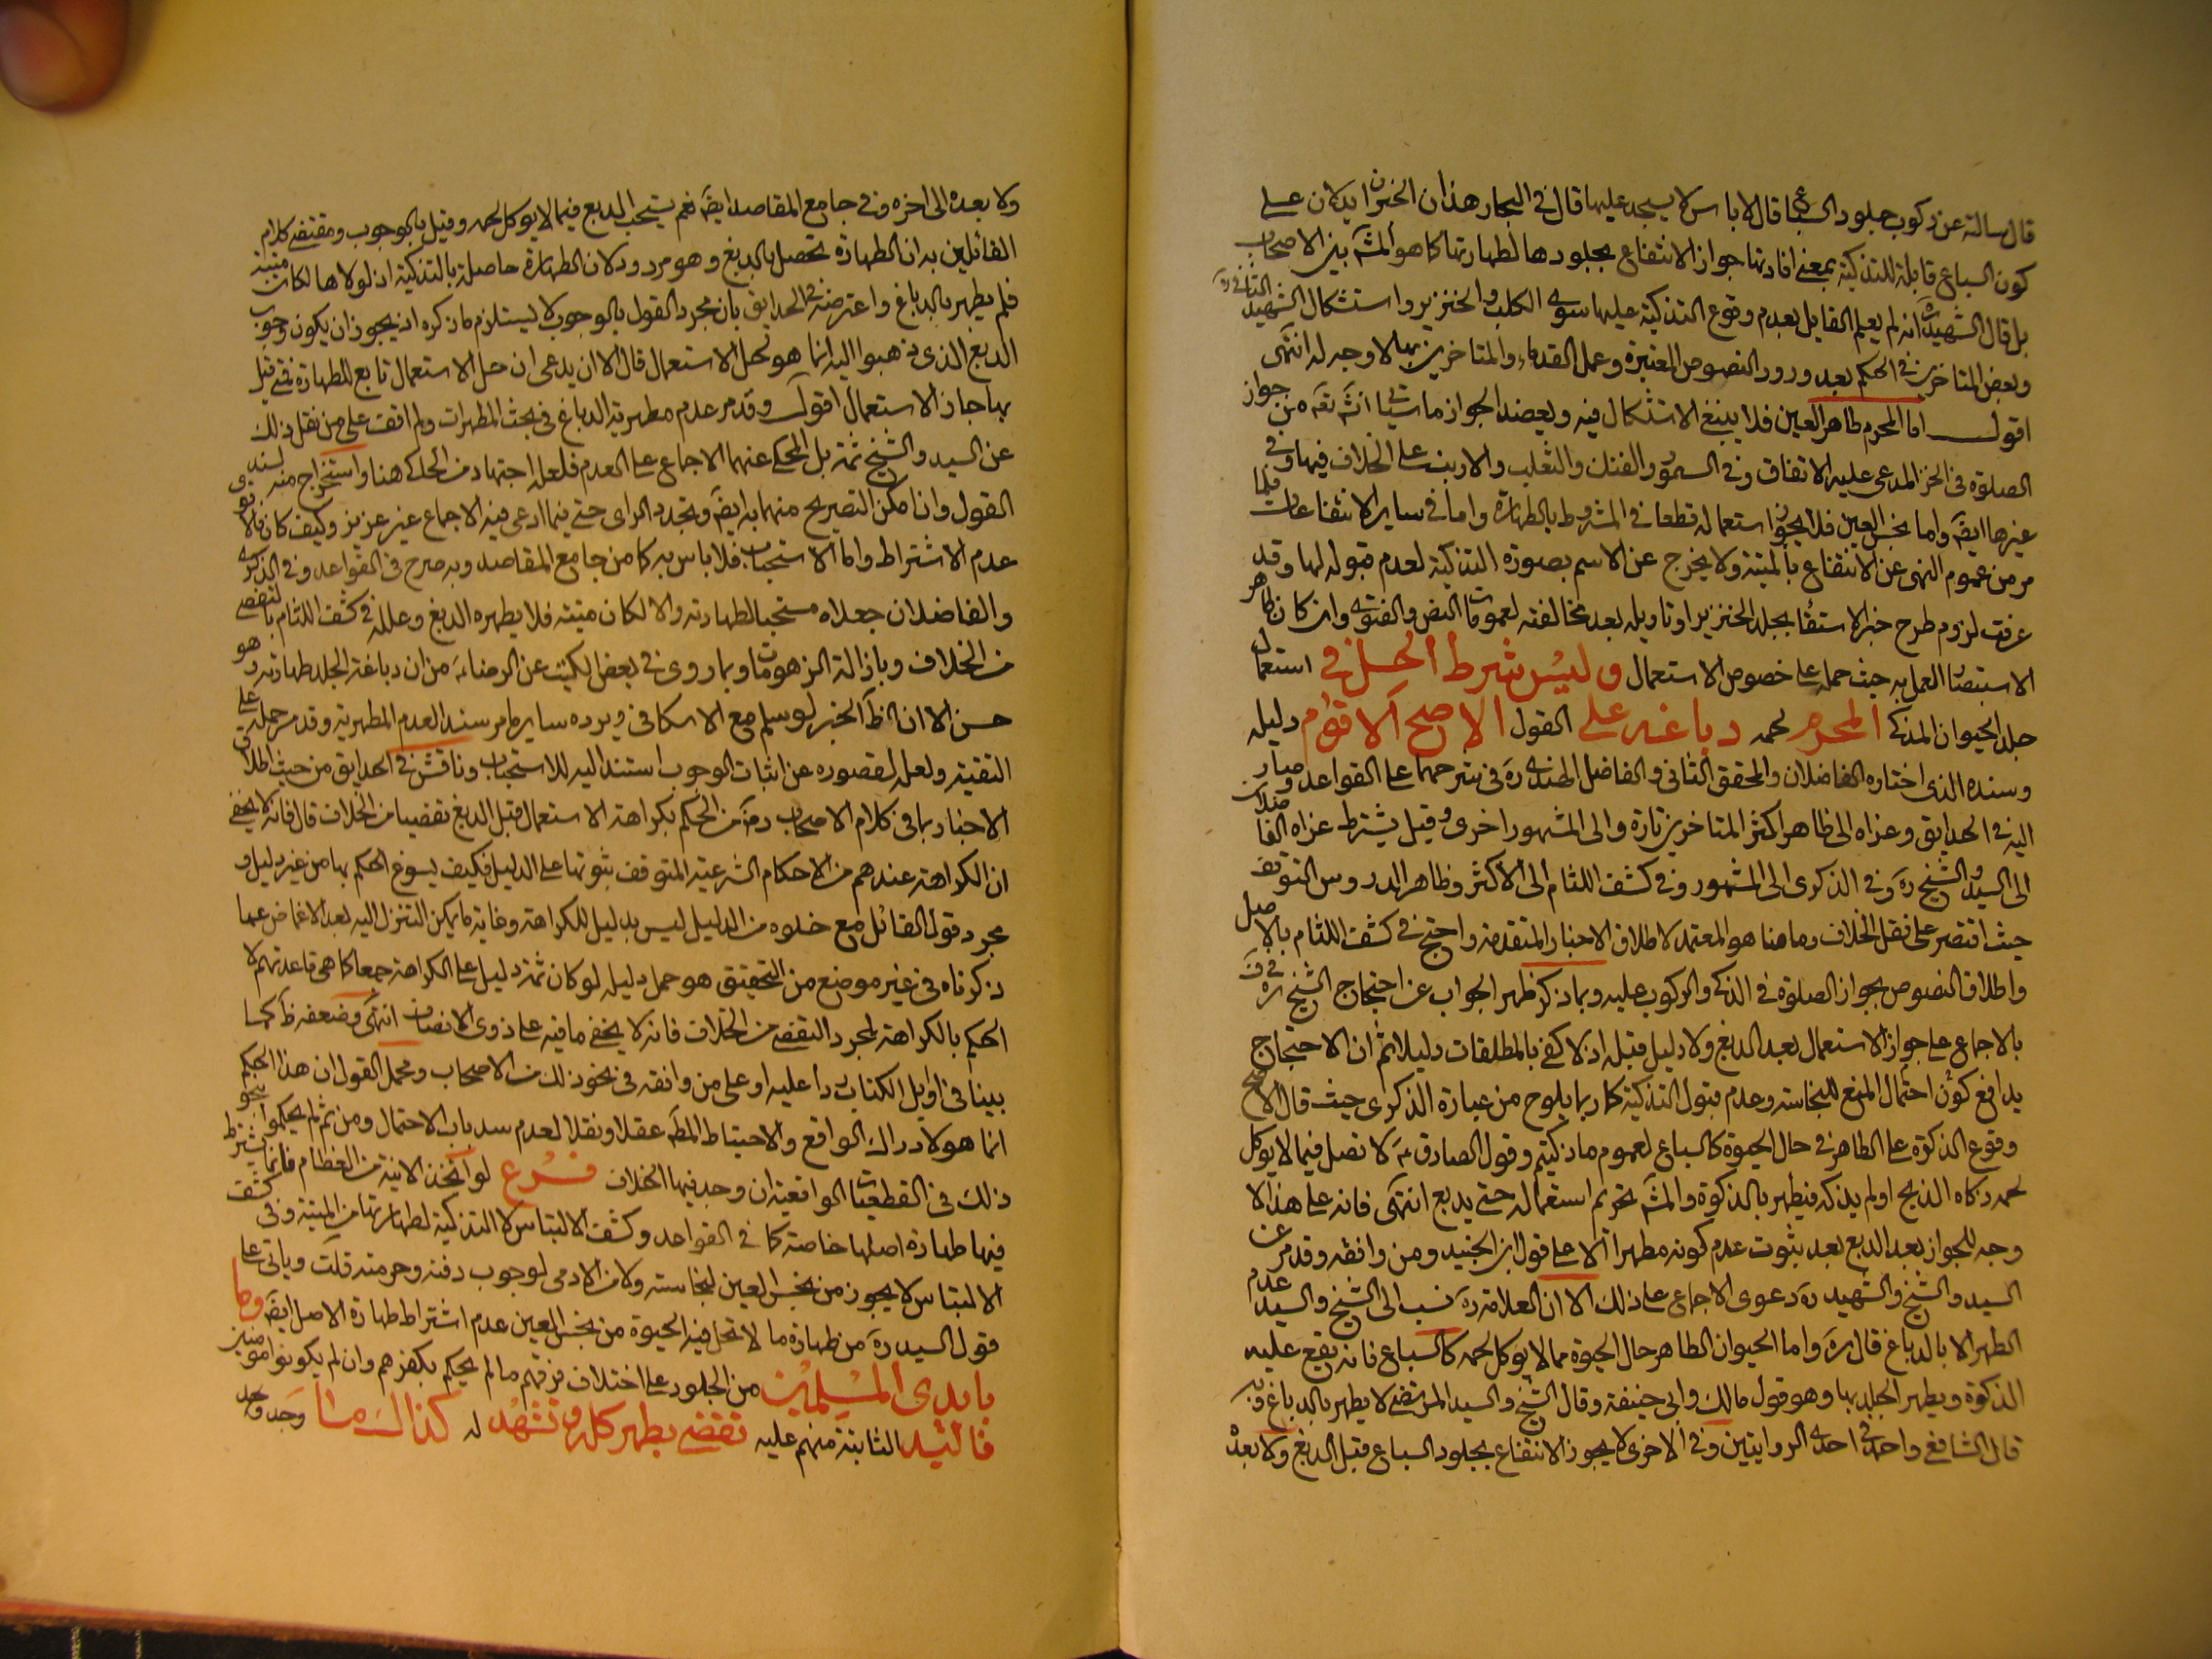 قال سالته عن ركوب جلود السباع قال لا باس لا يسجد عليها قال في البحار هذان الخبران يدلان على
كون السباع قابلة للتذكية بمعنى افادتها جواز الانتفاع بجلودها لطهارتها كما هو المشه بين الاصحاب
بل قال الشهيد ره انه لم يعلم القايل بعدم وقوع التذكية عليها سوى الكلب والخنزير واستشكال الشهيد الثاني ره
وبعض المتاخرين في الحكم بعد ورود النصوص المعتبرة وعمل القدماء والمتاخرين بها لا وجه له انتهى
اقول اما المحرم طاهر العين فلا ينبغ الاستشكال فيه ويعضد الجواز ما سياتي انش تعه من جواز
الصلوة في الخز المدعى عليه الاتفاق وفي السمور والفنك والثعلب والارنب على الخلاف فيها وفي
غيرها ايضه واما نجس العين فلا يجوز استعماله قطعا في المشروط بالطهارة واما في ساير الانتفاعات فلما
مر من عموم النهى عن الانتفاع بالميتة ولا يخرج عن الاسم بصورة التذكية لعدم قبوله لها وقد
عرفت لزوم طرح خبر الاستقا بجلد الخنزير او تاويله بعد مخالفته لعمومات النص والفتوى وان كان ظاهر
الاستبصار العمل به حيث حمله على خصوص الاستعمال وليس شرط الحل في استعمال
جلد الحيوان المذكى المحرم لحمه دباغه على القول الاصح الاقوم دليله
وسنده الذي اختاره الفاضلان والمحقق الثاني والفاضل الهندى ره في شرحهما على القواعد وصار
اليه في الحدايق وعزاه الى ظاهر اكثر المتاخرين تارة والى المشهور اخرى وقيل يشترط عزاه الفاضلان
الى السيد والشيخ ره وفي الذكرى الى المشهور وفي كشف اللثام الى الاكثر وظاهر الدروس التوقف
حيث اقتصر على نقل الخلاف وما هنا هو المعتمد لاطلاق الاخبار المتقدمة واحتج في كشف اللثام بالاصل
واطلاق النصوص بجواز الصلوة في الذكى والركوب عليه وبما ذكر ظهر الجواب عن احتجاج الشيخ ره في ف
بالاجماع على جواز الاستعمال بعد الدبغ ولا دليل قبله اذ لا كفى بالمطلقات دليلا ثم ان الاحتجاج
يدافع كون احتمال المنع للنجاسة وعدم قبول التذكية كما ربما يلوح من عبارة الذكرى حيث قال الاصح
وقوع الذكوة على الطاهر في حال الحيوة كالسباع لعموم ما ذكيتم وقول الصادق ع لا تصل فيما لا يوكل
لحمه ذكاه الذبح او لم يذكه فيطهر بالذكوة والمشه تحريم استعماله حتى يدبغ انتهى فانه على هذا لا
وجه للجواز بعد الدبغ بعد ثبوت عدم كونه مطهرا الا على قول ابن الجنيد ومن وافقه وقد مر عن
السيد والشيخ والشهيد ره دعوى الاجماع على ذلك الا ان العلامة ره نسب الى الشيخ والسيد عدم
الطهر الا بالدباغ قال ره واما الحيوان الطاهر حال الحيوة مما لا يوكل لحمه كالسباع فانه يقع عليه
الذكوة ويطهر الجلد بها وهو قول مالك وابي حنيفة وقال الشيخ والسيد المرتضى لا يطهر بالدباغ وبه
قال الشافعي واحمد في احدى الروايتين وفي الاخرى لا يجوز الانتفاع بجلود السباع قبل الدبغ ولا بعده
ولا بعده الى اخره وفي جامع المقاصد ايضه نعم يستحب الدبغ فيما لا يوكل لحمه وقيل بالوجوب ومقتضى كلام
القائلين به ان الطهارة تحصل بالدبغ وهو مردود لان الطهارة حاصلة بالتذكية اذ لولاها لكان ميتة
فلم يطهر بالدباغ واعترضه في الحدايق بان مجرد القول بالوجوب لا يستلزم ما ذكره اذ يجوز ان يكون وجوب
الدبغ الذي ذهبوا اليه انما هو لحل الاستعمال قال الا ان يدعى ان حل الاستعمال تابع للطهارة فمتى قيل
بها جاز الاستعمال اقول وقد مر عدم مطهرية الدباغ في بحث المطهرات ولم اقف على من نقل ذلك
عن السيد والشيخ ثمة بل المحكى عنهما الاجماع على العدم فلعله اجتهاد من الحاكى هنا واستخراج منه لسندى
القول وان امكن التصريح منهما به ايضه وتجدد الراى حتى فيما ادعى فيه الاجماع غير عزيز وكيف كان فالاقوى
عدم الاشتراط واما الاستحباب فلا باس به كما من جامع المقاصد وبه صرح في القواعد وفي الذكرى
والفاضلان جعلاه مستحبا لطهارته والا لكان ميتة فلا يطهره الدبغ وعلله في كشف اللثام بالتفصى
من الخلاف وبازالة الزهومات وبما روى في بعض الكتب عن الرضا ع من ان دباغة الجلد طهارته وهو
حسن الا ان ظ الخبر لو سلم مع الاسكافي ويرده ساير ما مر سند العدم المطهرية وقد مر حمله على
التقية ولعله لقصوره عن اثبات الوجوب استند اليه للاستحباب وناقش في الحدايق من حيث اطلاق
الاخبار بما في كلام الاصحاب رض من الحكم بكراهة الاستعمال قبل الدبغ تفصيا من الخلاف قال فانه لا يخفى
ان الكراهة عندهم من الاحكام الشرعية المتوقف ثبوتها على الدليل فكيف يسوغ الحكم بها من غير دليل و
مجرد قول القائل مع خلوه من الدليل ليس بدليل للكراهة وغاية ما يمكن التنزل اليه بعد الاغماض عما
ذكرناه في غير موضع من التحقيق هو حمل دليله لو كان ثمة دليل على الكراهة جمعا كما هي قاعدتهم لا
الحكم بالكراهة لمجرد التفصى من الخلاف فانه لا يخفى ما فيه على ذوى الانصاف انتهى وضعفه ظ كما
بينا في اوايل الكتاب ردا عليه او على من وافقه في نحو ذلك من الاصحاب ومحمل القول ان هذا الحكم
انما هو لادراك الواقع والاحتياط المطه عقلا ونقلا لعدم سد باب الاحتمال ومن ثم لم يحكموا بنحو
ذلك في القطعيات الواقعية ان وجد فيها الخلاف فرع لو اتخذ الانية من العظام فانما يشترط
فيها طهارة اصلها خاصة كما في القواعد وكشف الالتباس لا التذكية لطهارتها من الميتة وفي كشف
الالتباس لا يجوز من نجس العين لنجاسته ولا من الادمى لوجوب دفنه وحرمته قلت وياتى على
قول السيد ره من طهارة ما لا تحل فيه الحيوة من نجس العين عدم اشتراط طهارة الاصل ايضه وما
بايدى المسلمين من الجلود على اختلاف فرقهم ما لم يحكم بكفرهم وان لم يكونوا مومنين
فاليد الثابتة منهم عليه تقضى بطهر كله وتشهد له كذاك ما وجد وقد